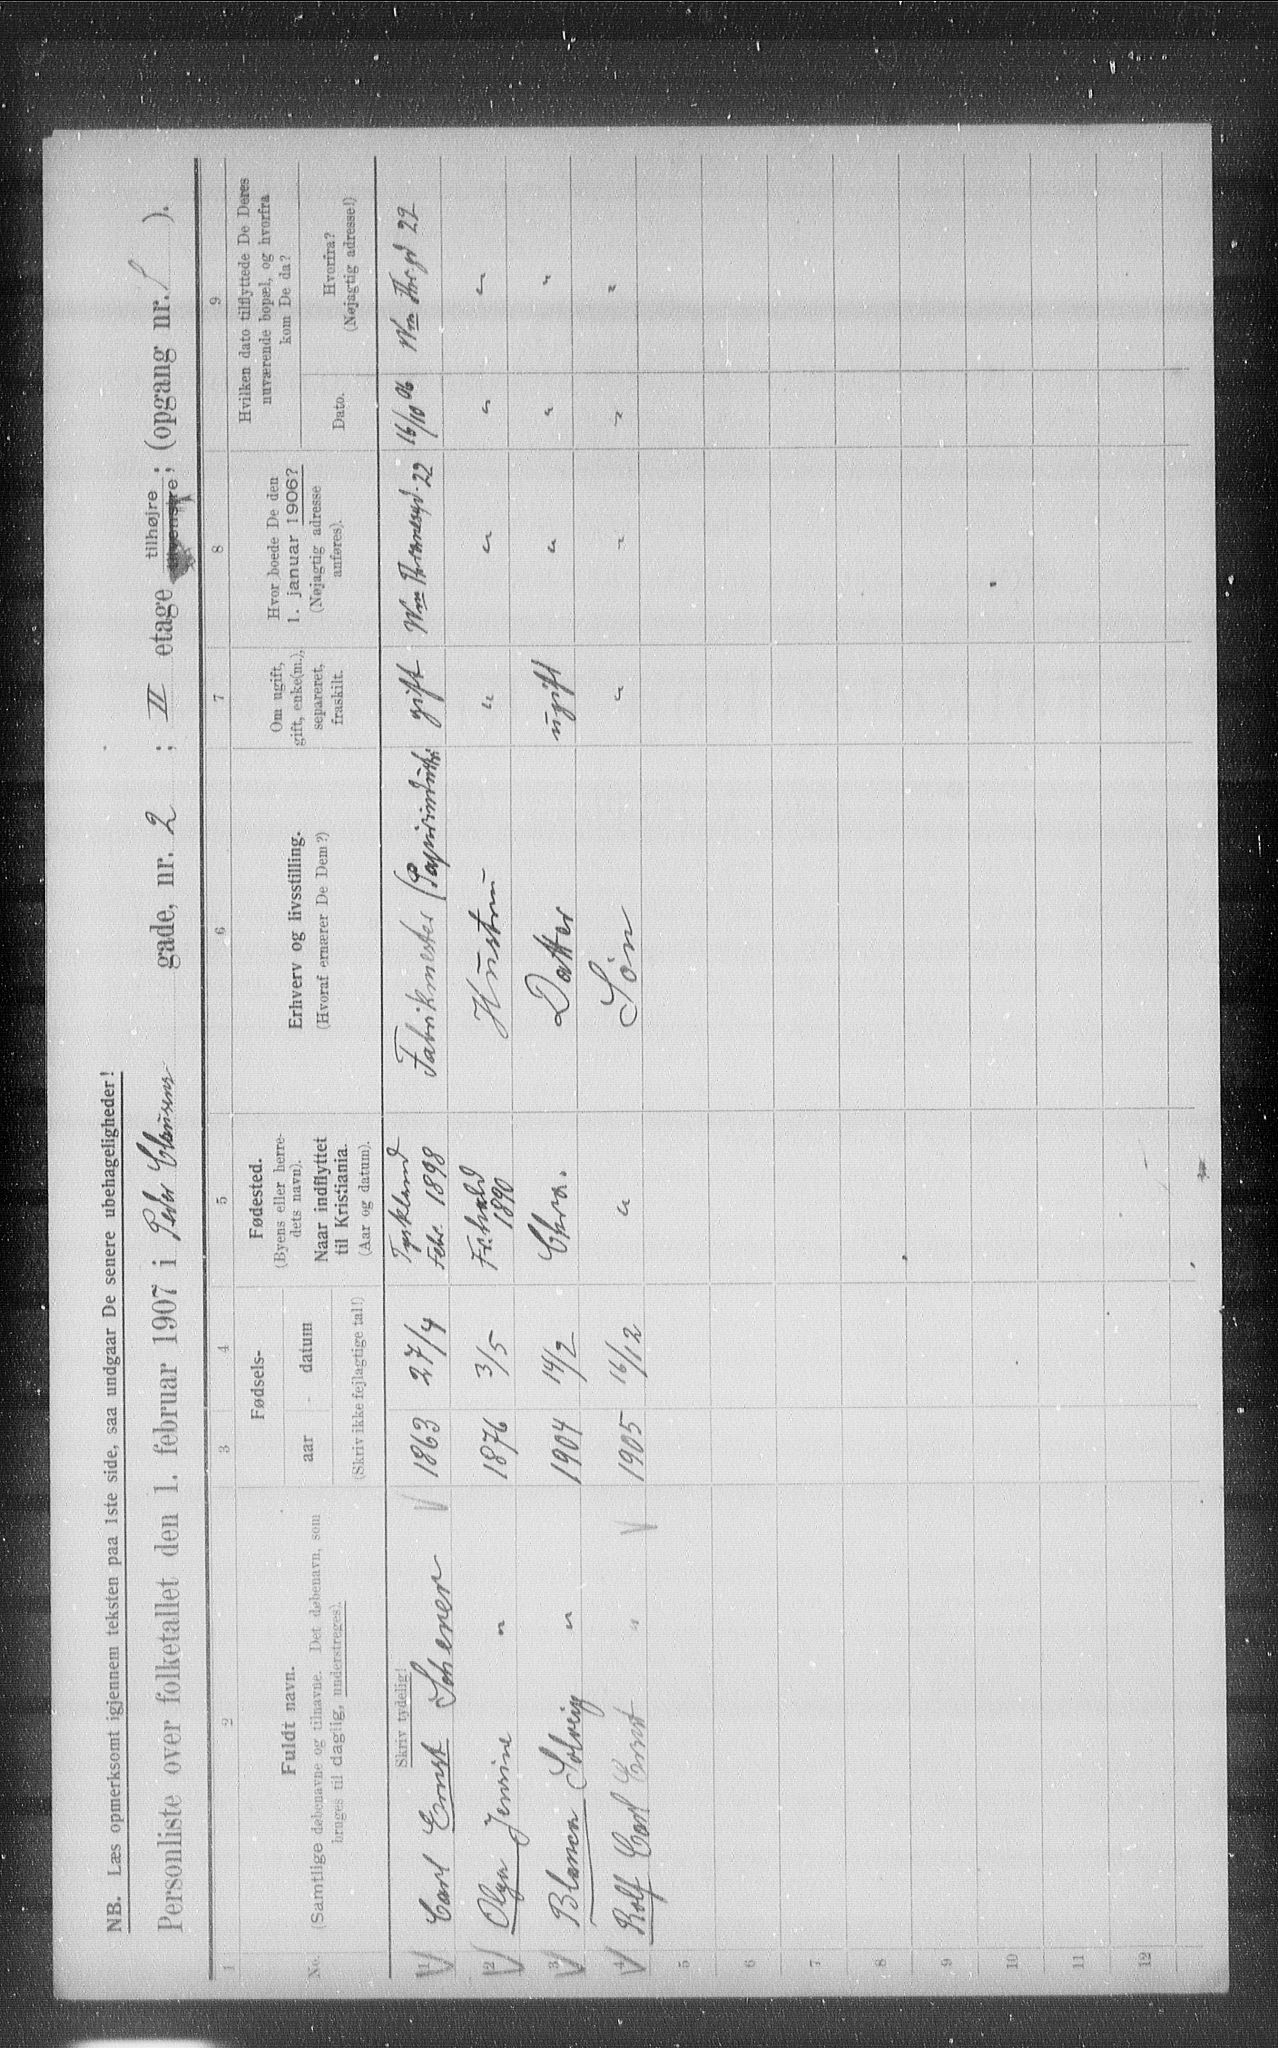 NB. Læs opmerksomt igjennem teksten paa 1ste side, saa undgaar De senere ubehageligheder!
Personliste over folketallet den 1. februar 1907 i Peder Claussens gade, nr. 2; II etage tilhøjre tilvenstre; (opgang nr. ).
1 2 3 4 5 6 7 8 9
No.
Fuldt navn.
(Samtlige døbenavne og tilnavne. Det døbenavn, som
bruges til daglig, understreges).
Fødsels-
aar - datum
(Skriv ikke fejlagtige tal!)
Fødested.
(Byens eller herre-
dets navn).
Naar indflyttet
til Kristiania.
(Aar og datum).
Erhverv og livsstilling.
(Hvoraf ernærer De Dem?)
Om ugift,
gift, enke(m.),
separeret,
fraskilt.
Hvor boede De den
1. januar 1906?
(Nøjagtig adresse
anføres).
Hvilken dato tilflyttede De Deres
nuværende bopæl, og hvorfra
kom De da?
Dato.
Hvorfra?
(Nøjagtig adresse!)
Skriv tydelig!
1 Carl Ernst Scherer 1863 27/4 Tyskland Febr. 1898 Fabrikmester gift Wm Thranesgd. 22 16/10 06 Wm Thr. gd 22
2 Olga Jensine " 1876 3/5 Fr.hald 1890 Hustru " " " "
3 Blanca Solveig " 1904 14/2 Chra. Datter ugift " " "
4 Rolf Carl Ernst " 1905 16/12 " Sön " " " "
5
6
7
8
9
10
11
12